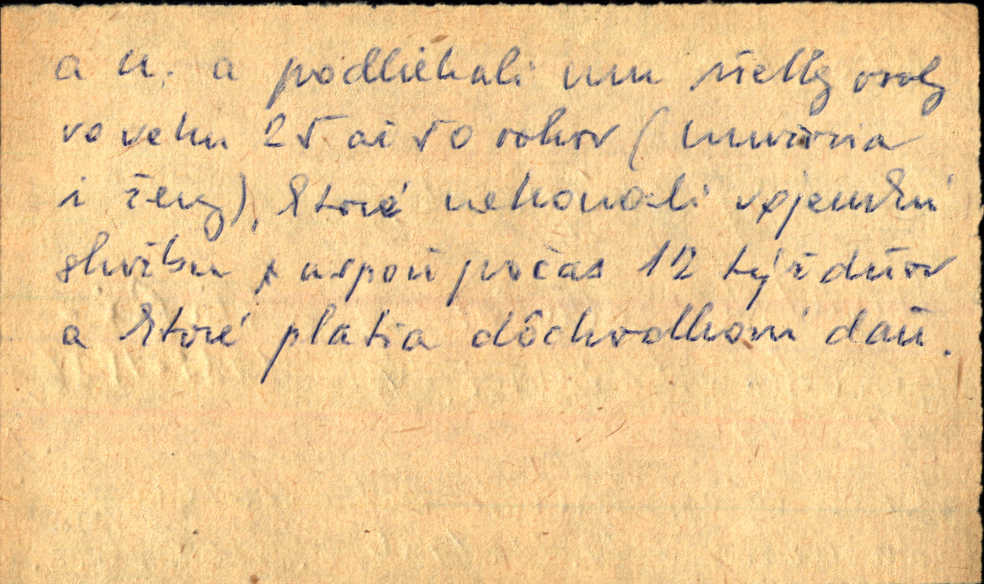 a n. a podliehali mu všetky osoby
vo veku 25 až 50 rokov (muži
i ženy), ktoré nekonali vojenskú
službu aspoň počas 12 týždňov
a ktoré platia dôchodkovú daň.